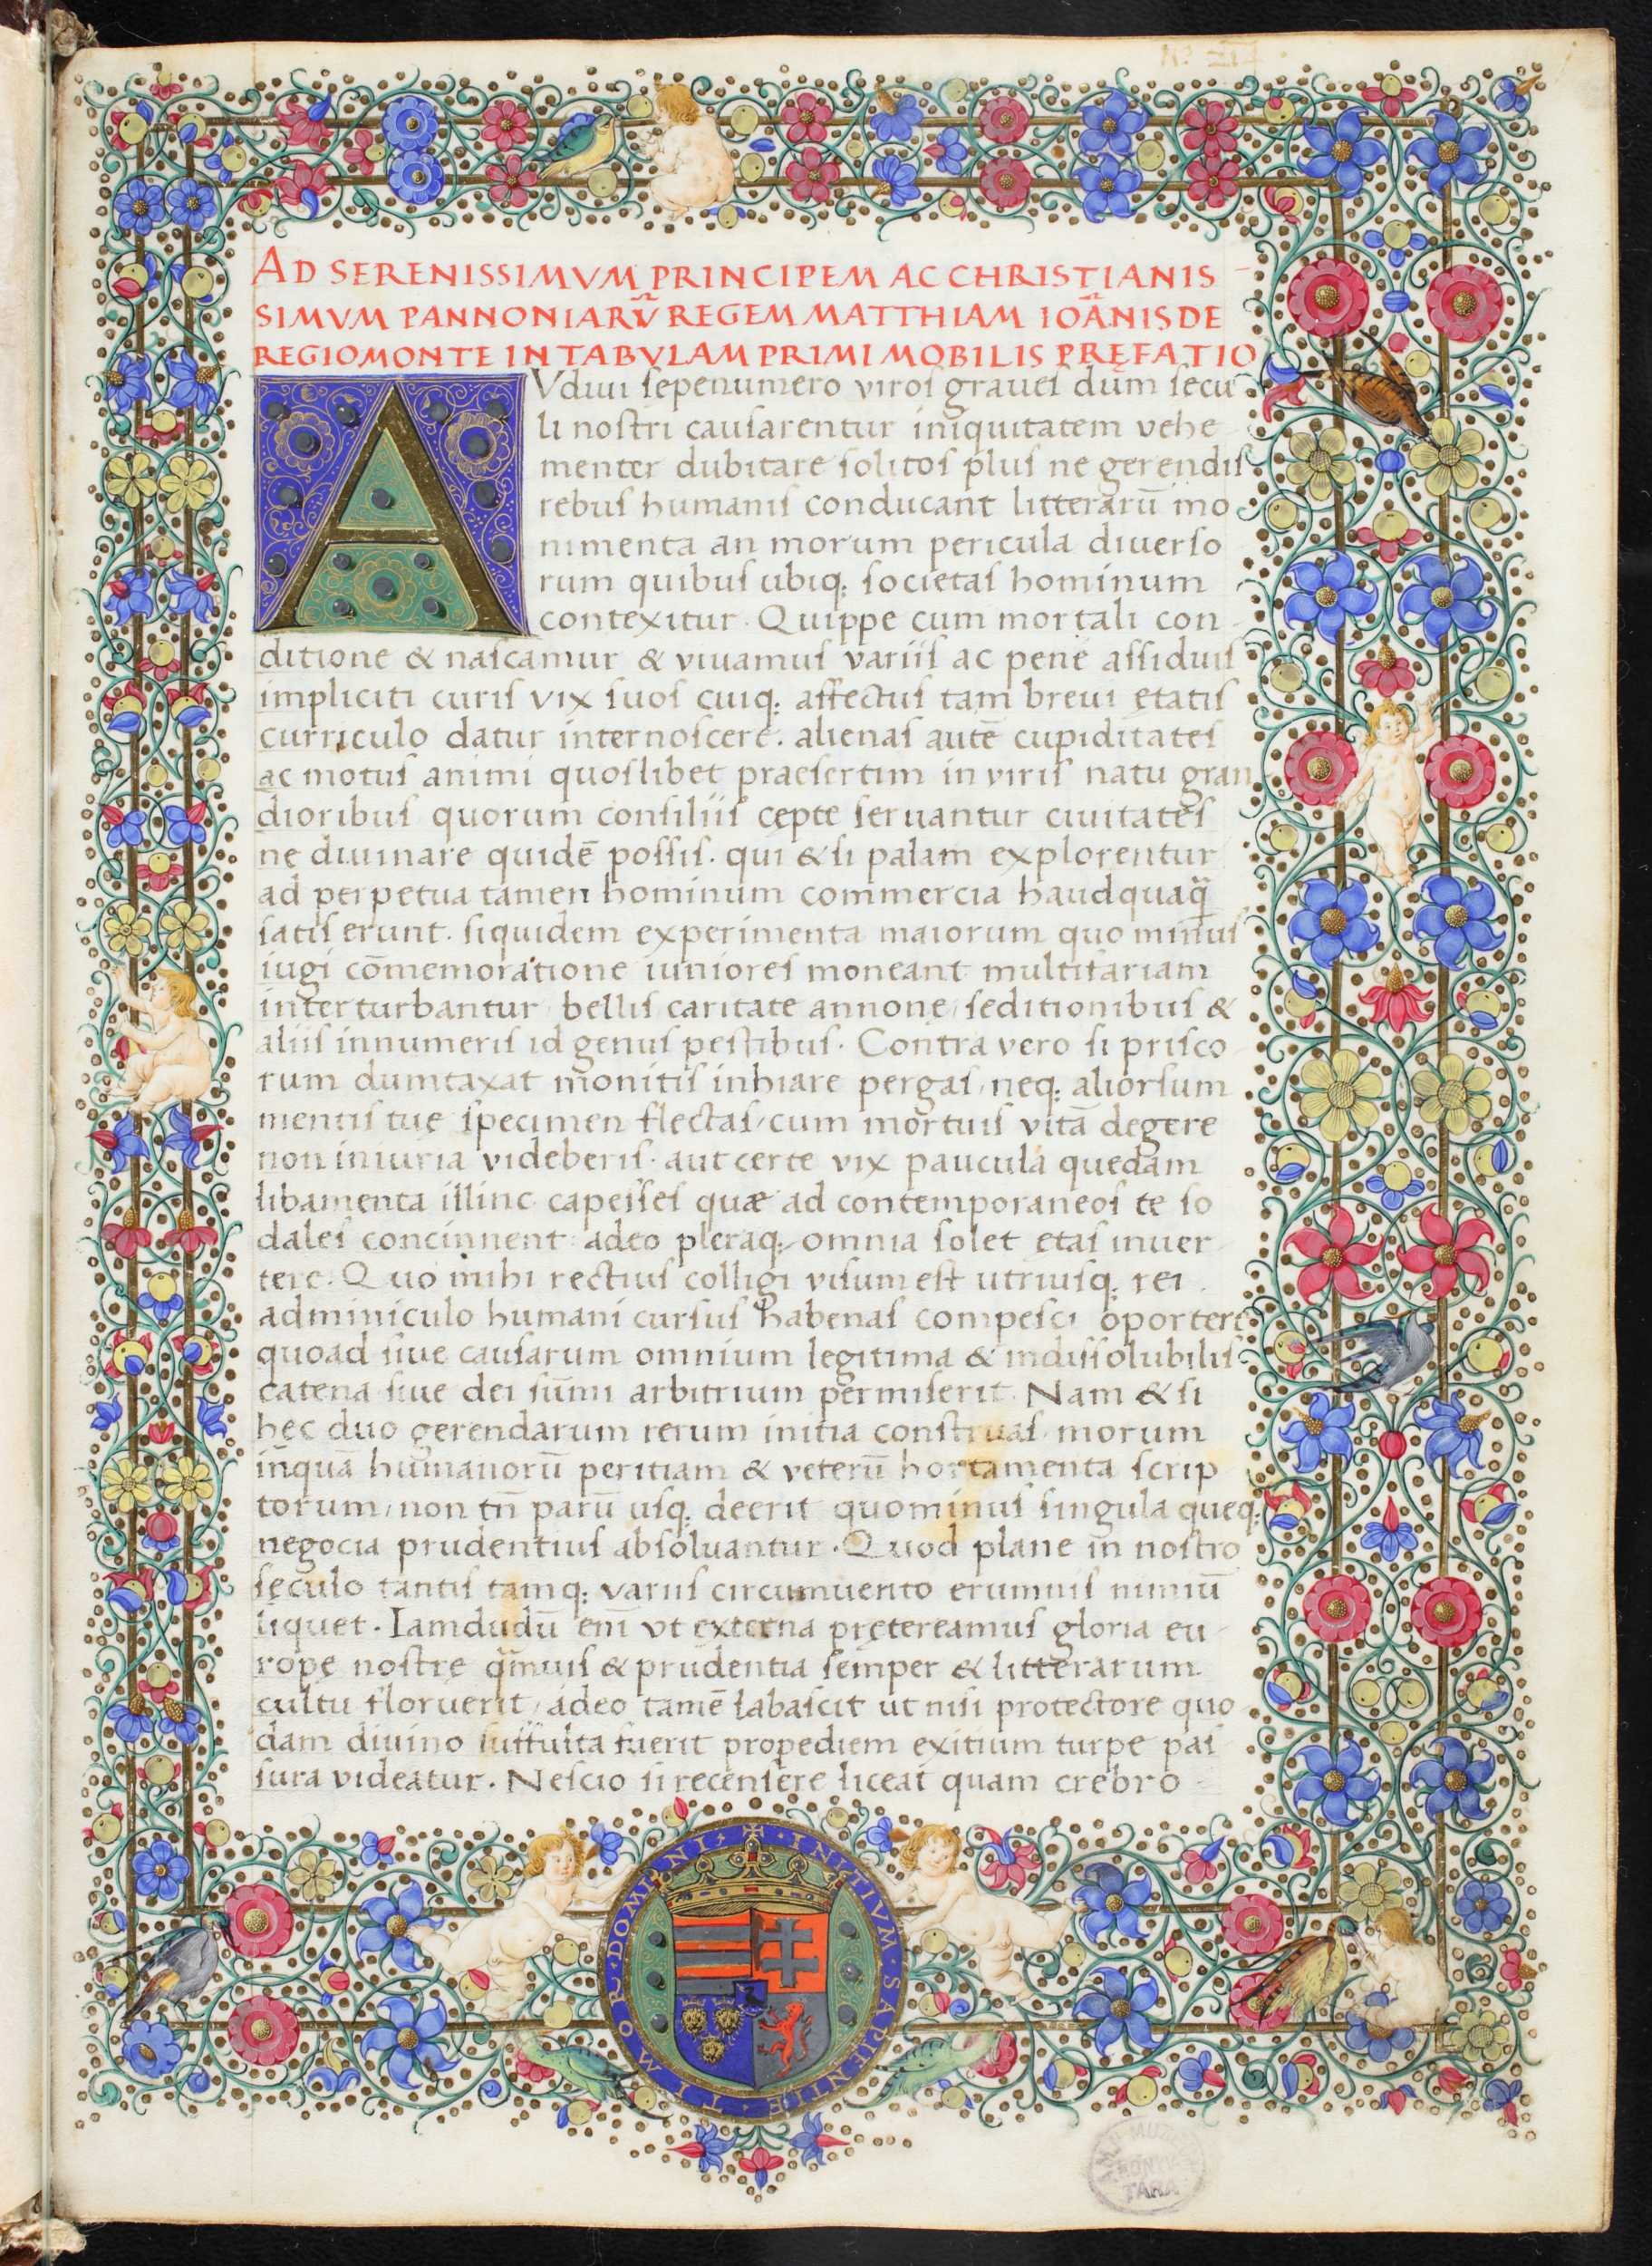 AD SERENISSIMVM PRINCIPEM AC CHRISTIANIS
SIMVM PANNONIARV̄ REGEM MATTHIAM IOĀNIS DE
REGIOMONTE IN TABVLAM PRIMI MOBILIS PRĘFATIO
AVdiui sepenumero viros graues dum secu
li nostri causarentur iniquitatem vehe
menter dubitare solitos plus ne gerendis
rebus humanis conducant litterarū mo
nimenta an morum pericula diuerso
rum quibus ubiq; societas hominum
contexitur. Quippe cum mortali con
ditione & nascamur & viuamus variis ac pene assiduis
impliciti curis vix suos cuiq; affectus tam breui ętatis
curriculo datur internoscere. alienas autē cupiditates
ac motus animi quoslibet praesertim in viris natu gran
dioribus quorum consiliis cepte seruantur ciuitates
ne diuinare quidē possis. qui & si palam explorentur
ad perpetua tamen hominum commercia haudquaq̄
satis erunt. siquidem experimenta maiorum quo minus
iugi cōmemoratione iuniores moneant multifariam
interturbantur bellis caritate annonę seditionibus &
aliis innumeris id genus pestibus. Contra vero si prisco
rum dumtaxat monitis inhiare pergas, neq; aliorsum
mentis tuę specimen flectas, cum mortuis vitā degere
non iniuria videberis. aut certe vix paucula quedam
libamenta illinc capesses quæ ad contemporaneos te so
dales concinnent: adeo pleraq; omnia solet etas inuer
tere. Quo mihi rectius colligi visum est utriusq; rei
adminiculo humani cursus habenas compesci oportere
quoad siue causarum omnium legitima & indissolubilis
catena siue dei sūmi arbitrium permiserit. Nam & si
hęc duo gerendarum rerum initia construas, morum
inquā humanorū peritiam & veterū hortamenta scrip
torum, non tn̄ parū usq; deerit quominus singula queq;
negocia prudentius absoluantur. Quod plane in nostro
sęculo tantis tamq; variis circumuento erumnis nimiū
liquet. Iamdudū em̄ vt externa prętereamus gloria eu
ropę nostrę q̄muis & prudentia semper & litterarum
cultu floruerit, adeo tamē labascit ut nisi protectore quo
dam diuino suffulta fuerit propediem exitium turpe pas
sura videatur. Nescio si recensere liceat quam crebro
INITIVM · SAPIENTIE · TIMOR · DOMINI
TARA